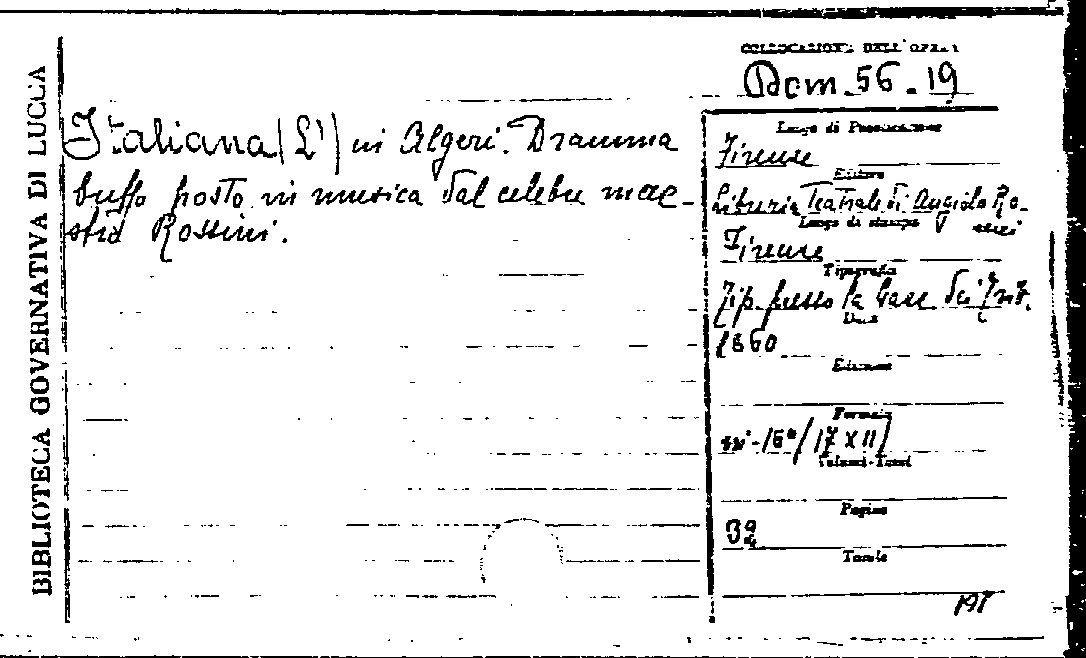 BIBLIOTECA GOVERNATIVA DI LUCCA
COLLOCAZIONE DELL'OPERA
Bcm. 56. 19
Italiana (L') in Algeri. Dramma
buffo posto in musica dal celebre mae-
stro Rossini.
Luogo di Pubblicazione
Firenze
Editore
Libreria Teatrale di Angiolo Ro-
Luogo di stampa
Firenze
Tipografia
Tip. presso la Casa dei
Data
1860
Edizione
Formato
in-16° (17 X 11)
Volumi-Tomi
Pagine
32
Tavole